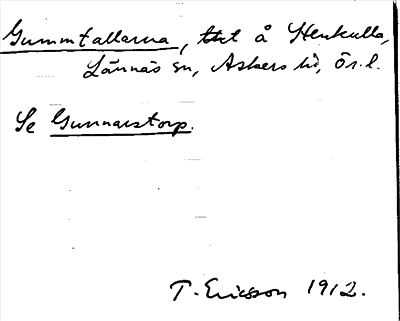 Gummtallarna, ttet å Henkulla,
Lännäs sn, Askers hd, Ör.l.
Se Gunnarstorp.
T. Ericsson 1912.